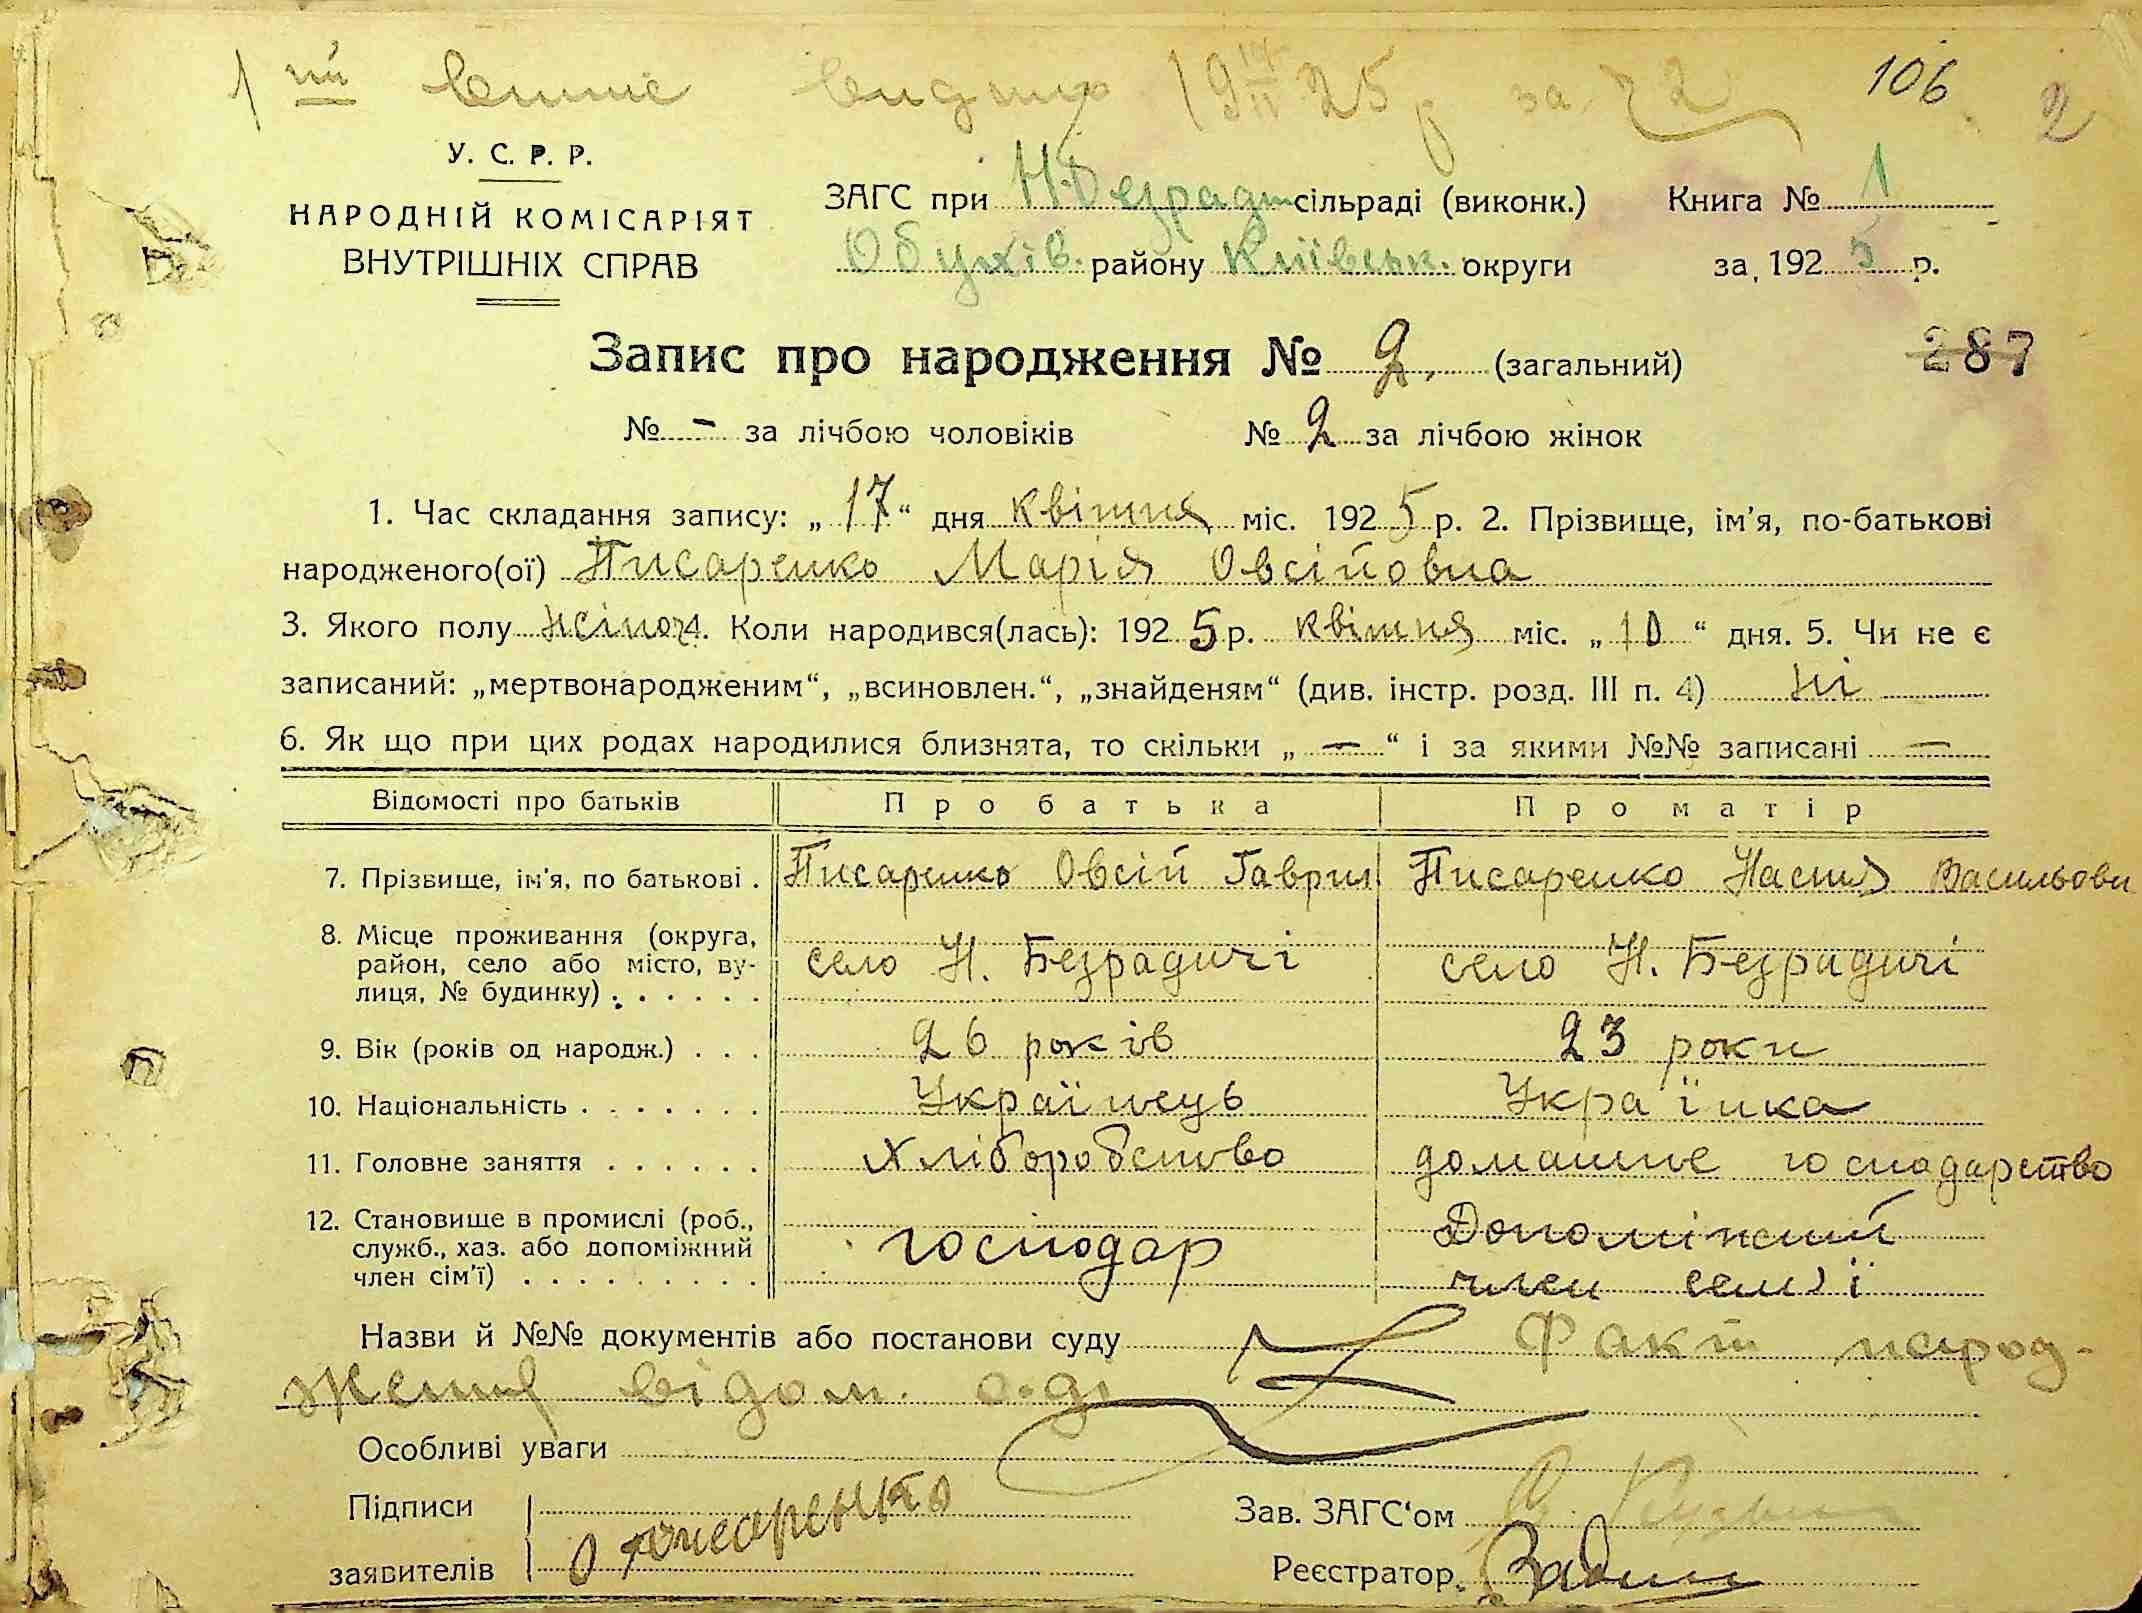 1ий 19 17/IV 25 р за 106 2
У. С. Р. Р.
НАРОДНІЙ КОМІСАРІЯТ
ВНУТРІШНІХ СПРАВ
ЗАГС при Н.Безрадит сільраді (виконк.) Книга № 1
Обухів. району Київськ. округи за 1925 р.
Запис про народження № 2. (загальний) 287
№ - за лічбою чоловіків № 2 за лічбою жінок
1. Час складання запису: „17“ дня квітня міс. 1925 р. 2. Прізвище, ім'я, по-батькові
народженого(ої) Писаренко Марія Овсійовна
3. Якого полу жіноч. 4. Коли народився(лась): 1925 р. квітня міс. „10“ дня. 5. Чи не є
записаний: „мертвонародженим“, „всиновлен.“, „знайденям“ (див. інстр. розд. III п. 4) ні
6. Як що при цих родах народилися близнята, то скільки „—“ і за якими №№ записані —
Відомості про батьків Про батька Про матір
7. Прізвище, ім'я, по батькові . Писаренко Овсій Гаврил Писаренко Настя Васильовн
8. Місце проживання (округа,
район, село або місто, ву-
лиця, № будинку) . . . . . . село Н. Безрадичі село Н. Безрадичі
9. Вік (років од народж.) . . . 26 років 23 роки
10. Національність . . . . . . . Українець Українка
11. Головне заняття . . . . . . Хліборобство домашнє господарство
12. Становище в промислі (роб.,
служб., хаз. або допоміжний
член сім'ї) . . . . . . . . . господар Допоміжний
член семʼї
Назви й №№ документів або постанови суду Факт народ-
ження відом.
Особливі уваги
Підписи
заявителів О Писаренко
Зав. ЗАГС'ом
Реєстратор